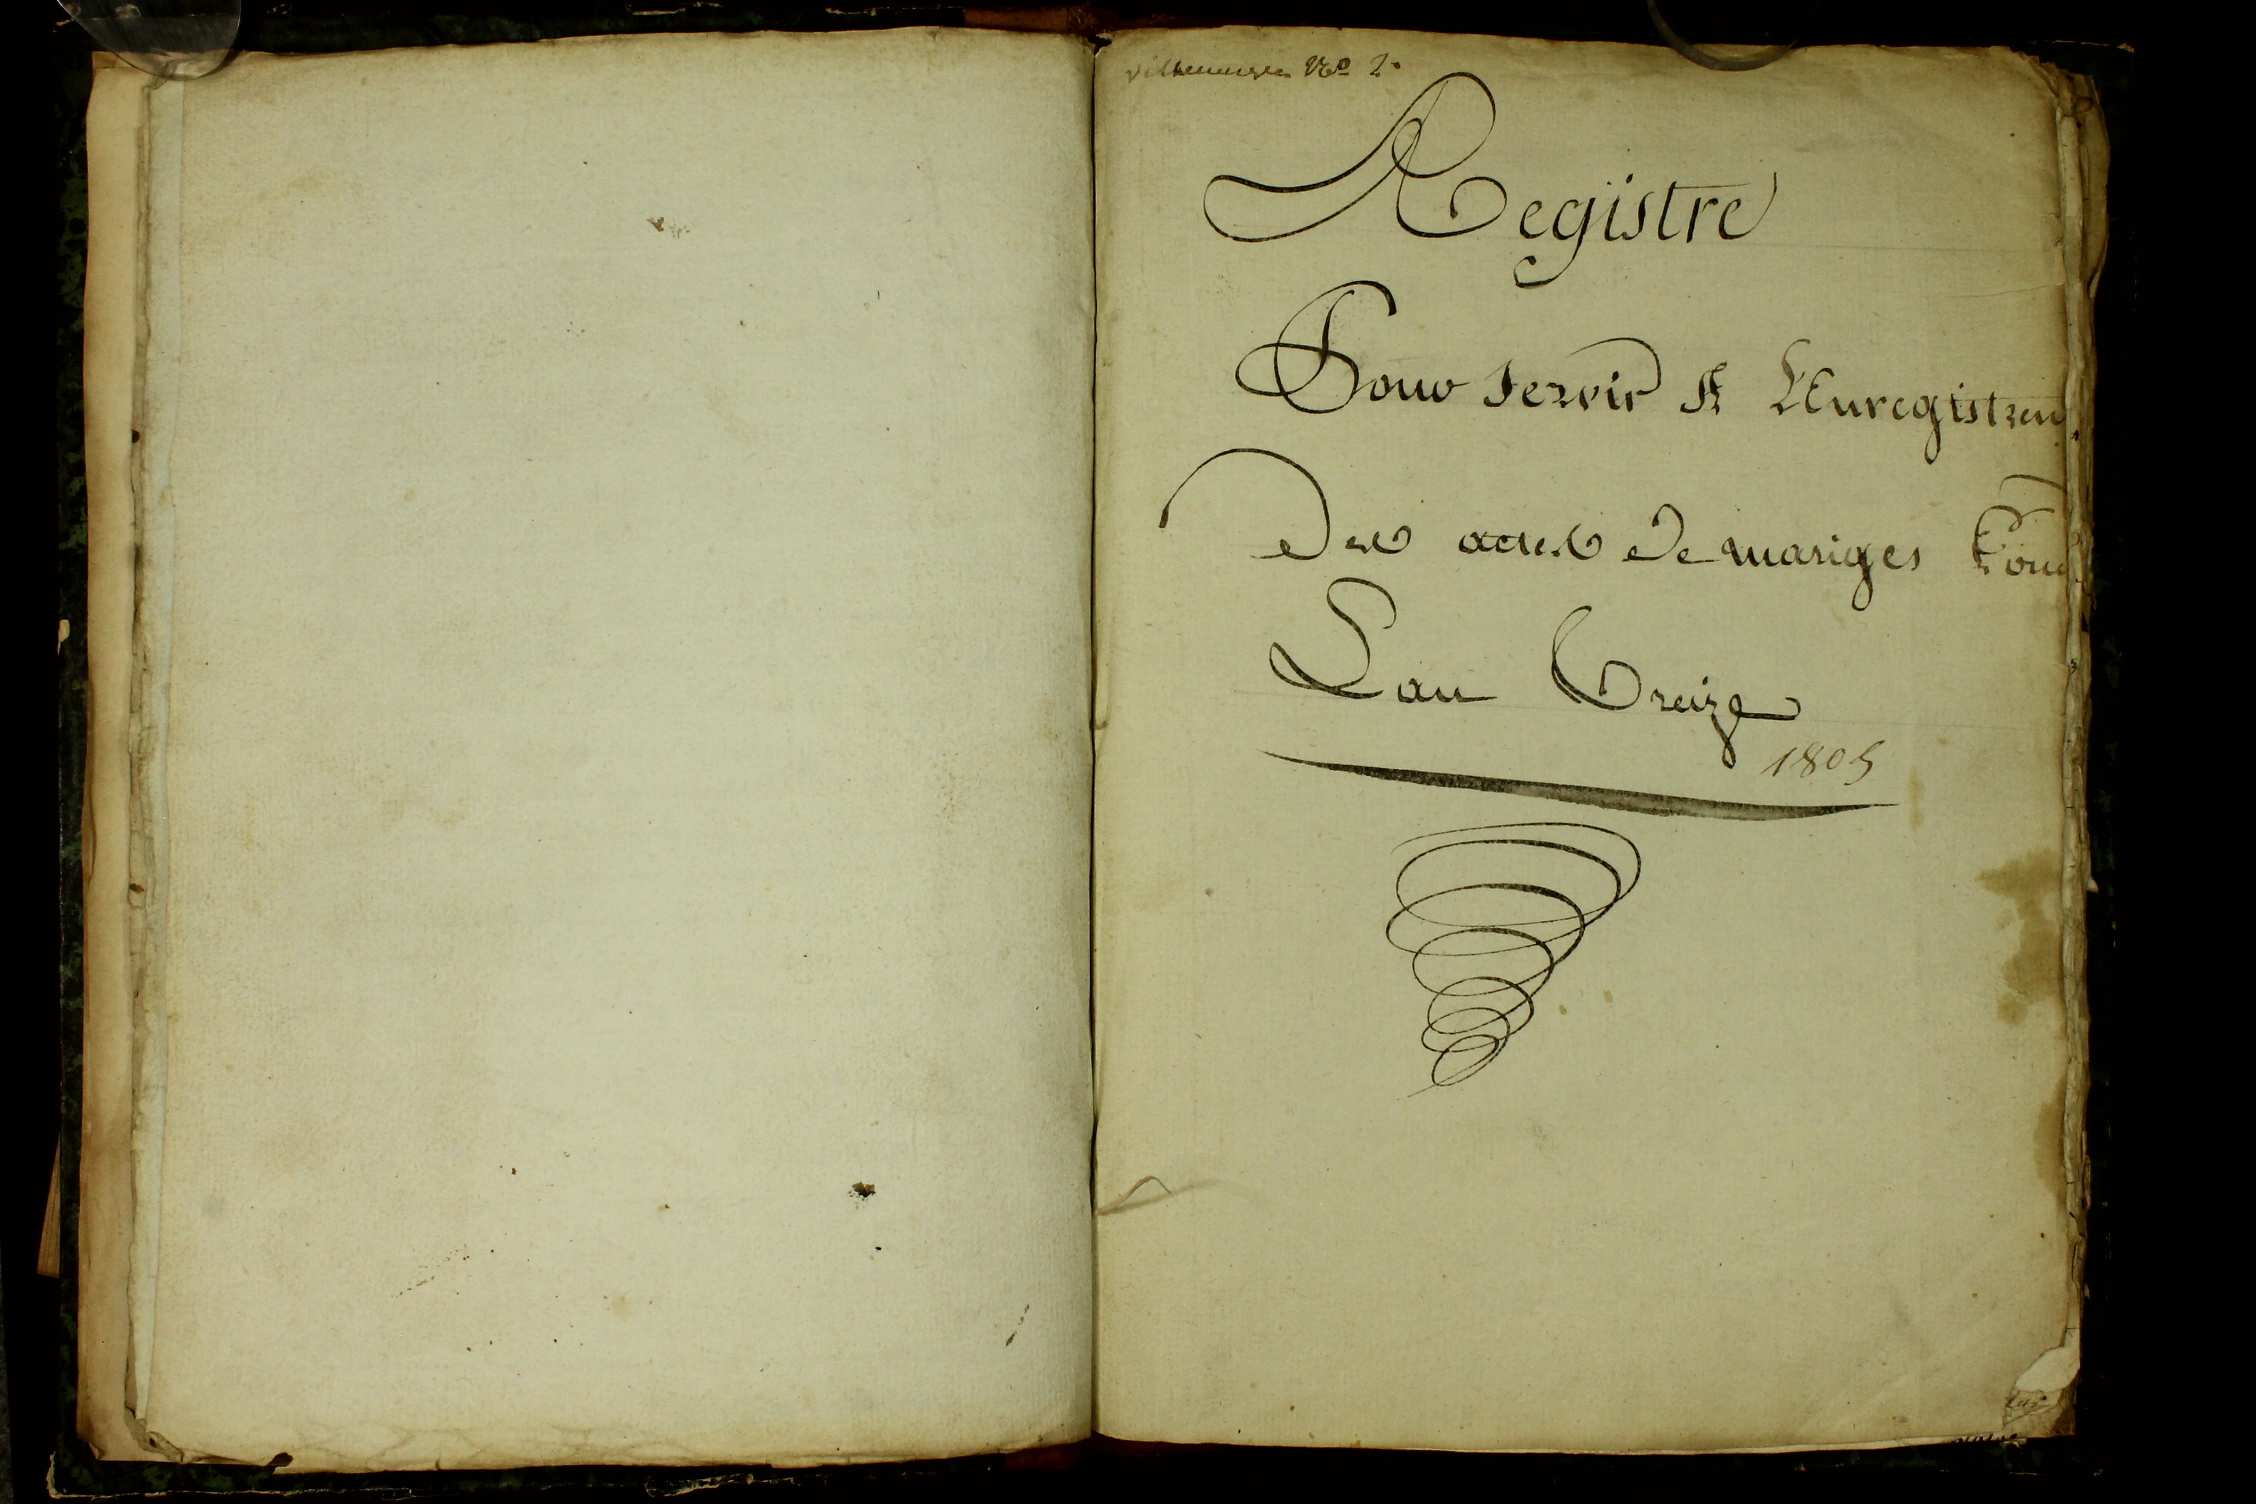 No 2.
Registre
Pour Servir A L'Enregistrem
Des actes De mariges Pour
L'an Treize
1805